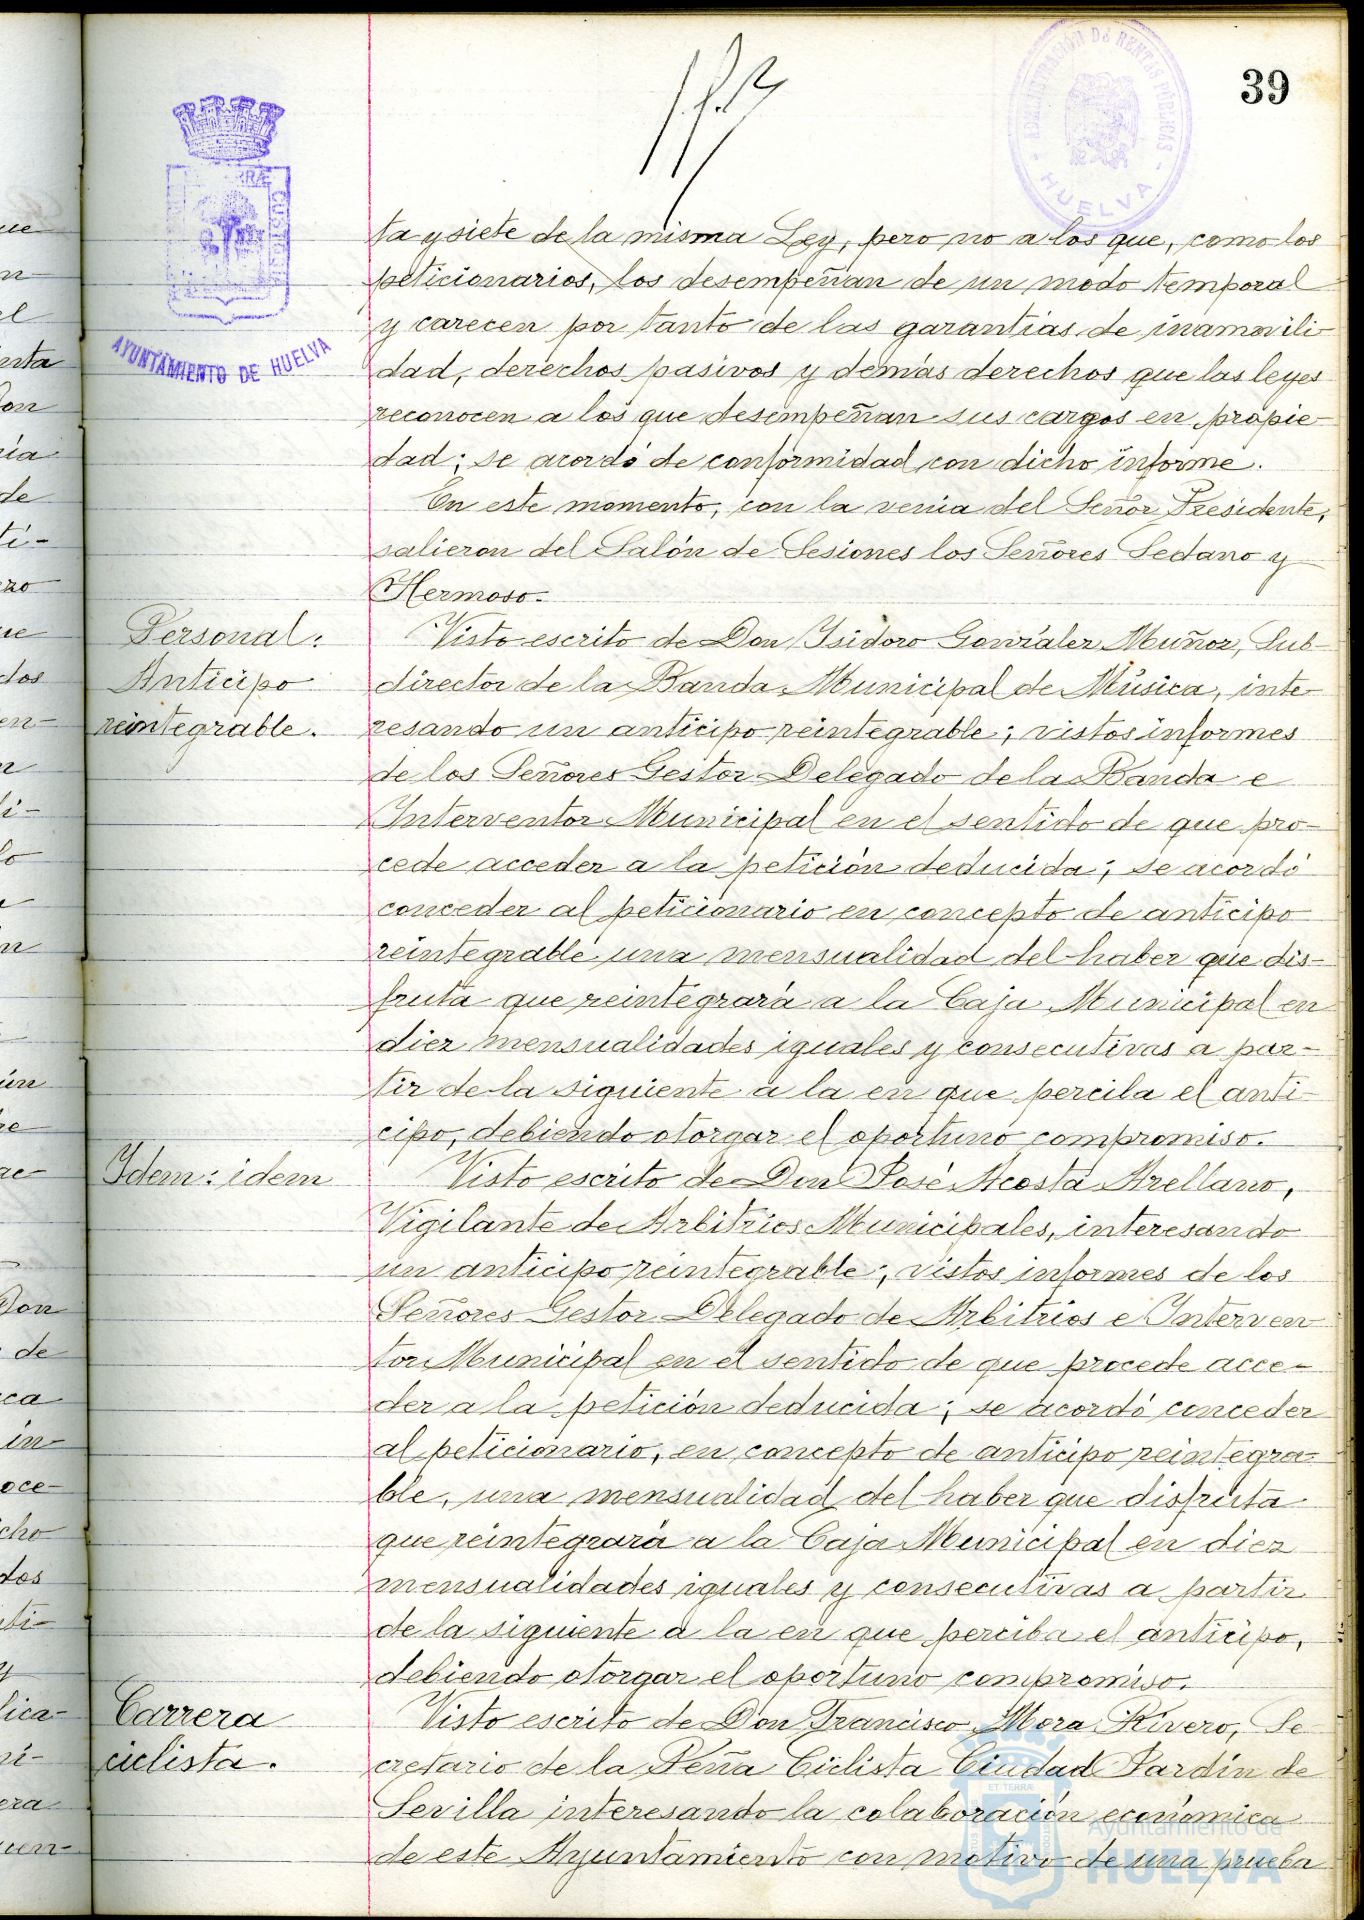 39
ADMINISTRACIÓN DE RENTAS PÚBLICAS
- HUELVA -
RRÆ CUSTODIA
AYUNTAMIENTO DE HUELVA
ta y siete de la misma Ley, pero no a los que, como los
peticionarios, los desempeñan de un modo temporal
y carecen por tanto de las garantías de inamovili-
dad, derechos pasivos y demás derechos que las leyes
reconocen a los que desempeñan sus cargos en propie-
dad; se acordó de conformidad con dicho informe.
En este momento, con la venia del Señor Presidente,
salieron del Salón de Sesiones los Señores Sedano y
Hermoso.-
Personal:
Anticipo
reintegrable.
Visto escrito de Don Isidoro González Muñoz, Sub-
director de la Banda Municipal de Música, inte-
resando un anticipo reintegrable; vistos informes
de los Señores Gestor Delegado de la Banda e
Interventor Municipal en el sentido de que pro-
cede acceder a la petición deducida; se acordó
conceder al peticionario en concepto de anticipo
reintegrable una mensualidad del haber que dis-
fruta que reintegrará a la Caja Municipal en
diez mensualidades iguales y consecutivas a par-
tir de la siguiente a la en que perciba el anti-
cipo, debiendo otorgar el oportuno compromiso.
Idem: idem
Visto escrito de Don José Acosta Arellano,
Vigilante de Arbitrios Municipales, interesando
un anticipo reintegrable; vistos informes de los
Señores Gestor Delegado de Arbitrios e Interven
tor Municipal en el sentido de que procede acce-
der a la petición deducida; se acordó conceder
al peticionario, en concepto de anticipo reintegra-
ble, una mensualidad del haber que disfruta
que reintegrará a la Caja Municipal en diez
mensualidades iguales y consecutivas a partir
de la siguiente a la en que perciba el anticipo,
debiendo otorgar el oportuno compromiso.
Carrera
ciclista.
Visto escrito de Don Francisco Mora Rivero, Se
cretario de la Peña Ciclista Ciudad Jardín de
Sevilla interesando la colaboración económica
de este Ayuntamiento con motivo de una prueba
ET TERRÆ
Ayuntamiento de
HUELVA